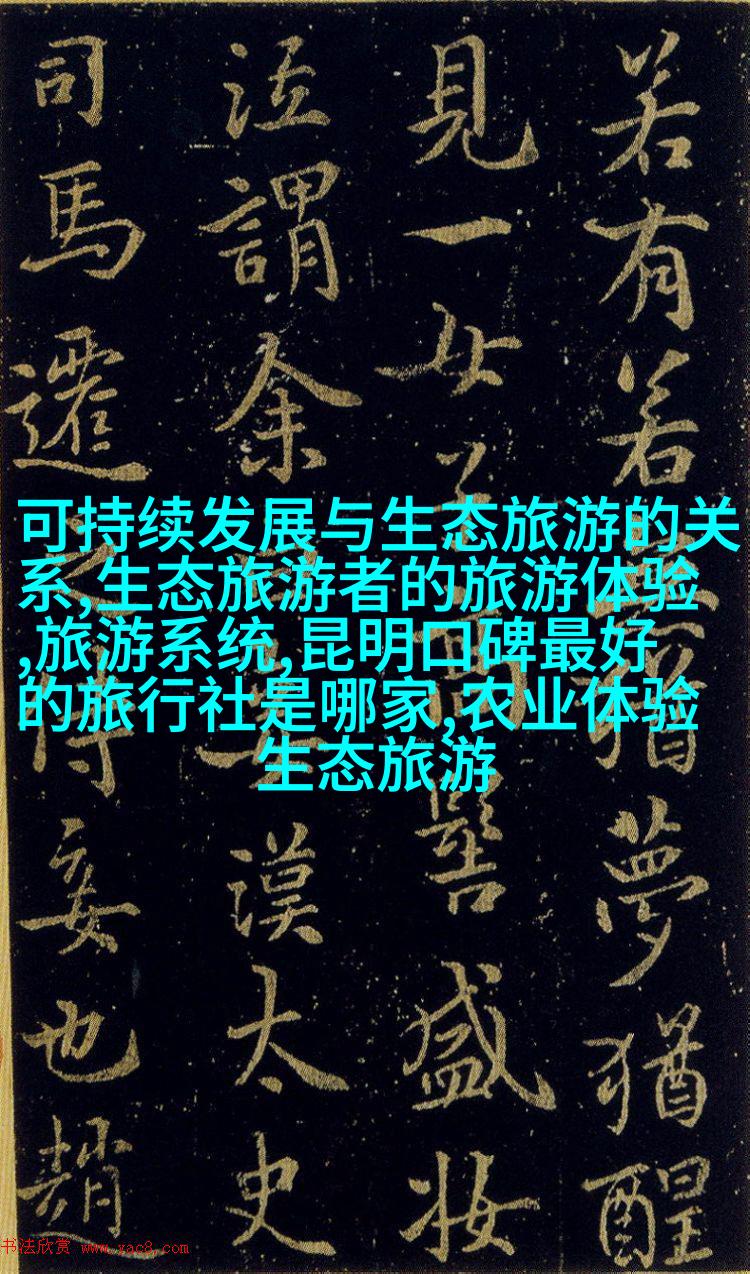 若有若猶夢猶醒
見一女子髻盛妝
泣謂余漢太史
司馬遷之侍妾也趙
可持续发展与生态旅游的关
系,生态旅游者的旅游体验
,旅游系统,昆明口碑最好
的旅行社是哪家,农业体验
生态旅游
书法欣赏 www.yac8.com